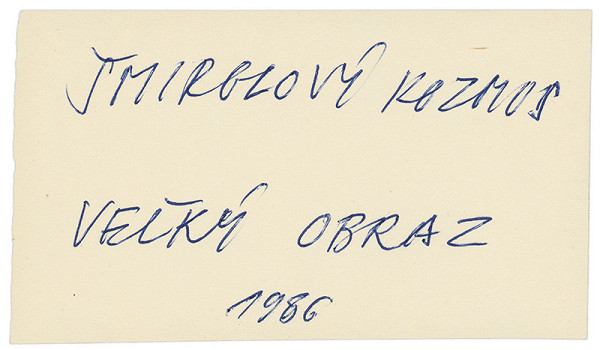 ŠMIRGLOVÝ KOZMOS
VEĽKÝ OBRAZ
1986